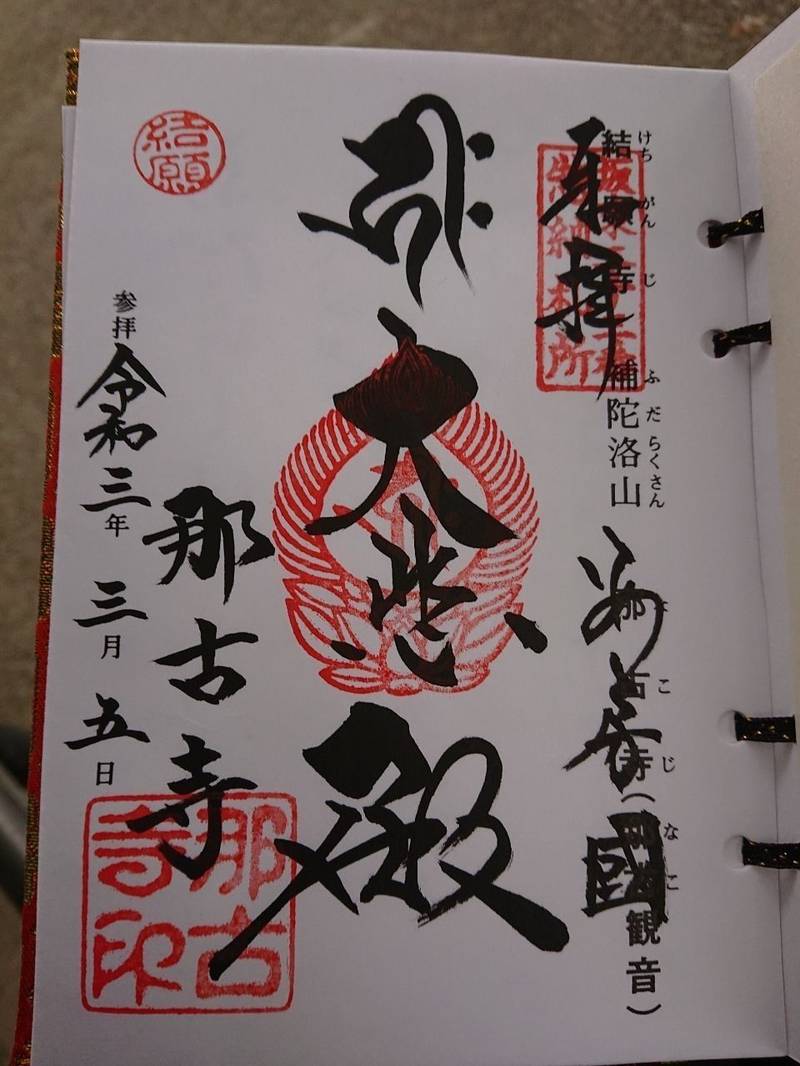 結願寺 補陀洛山 那古寺(那古観音)
けち がん じ ふ だ らく さん な こ じ な こ
奉拝
安房國
坂東三十三番
納札所
大悲殿
那古寺
那古
寺印
参拝 令和三年 三月 五日
結願